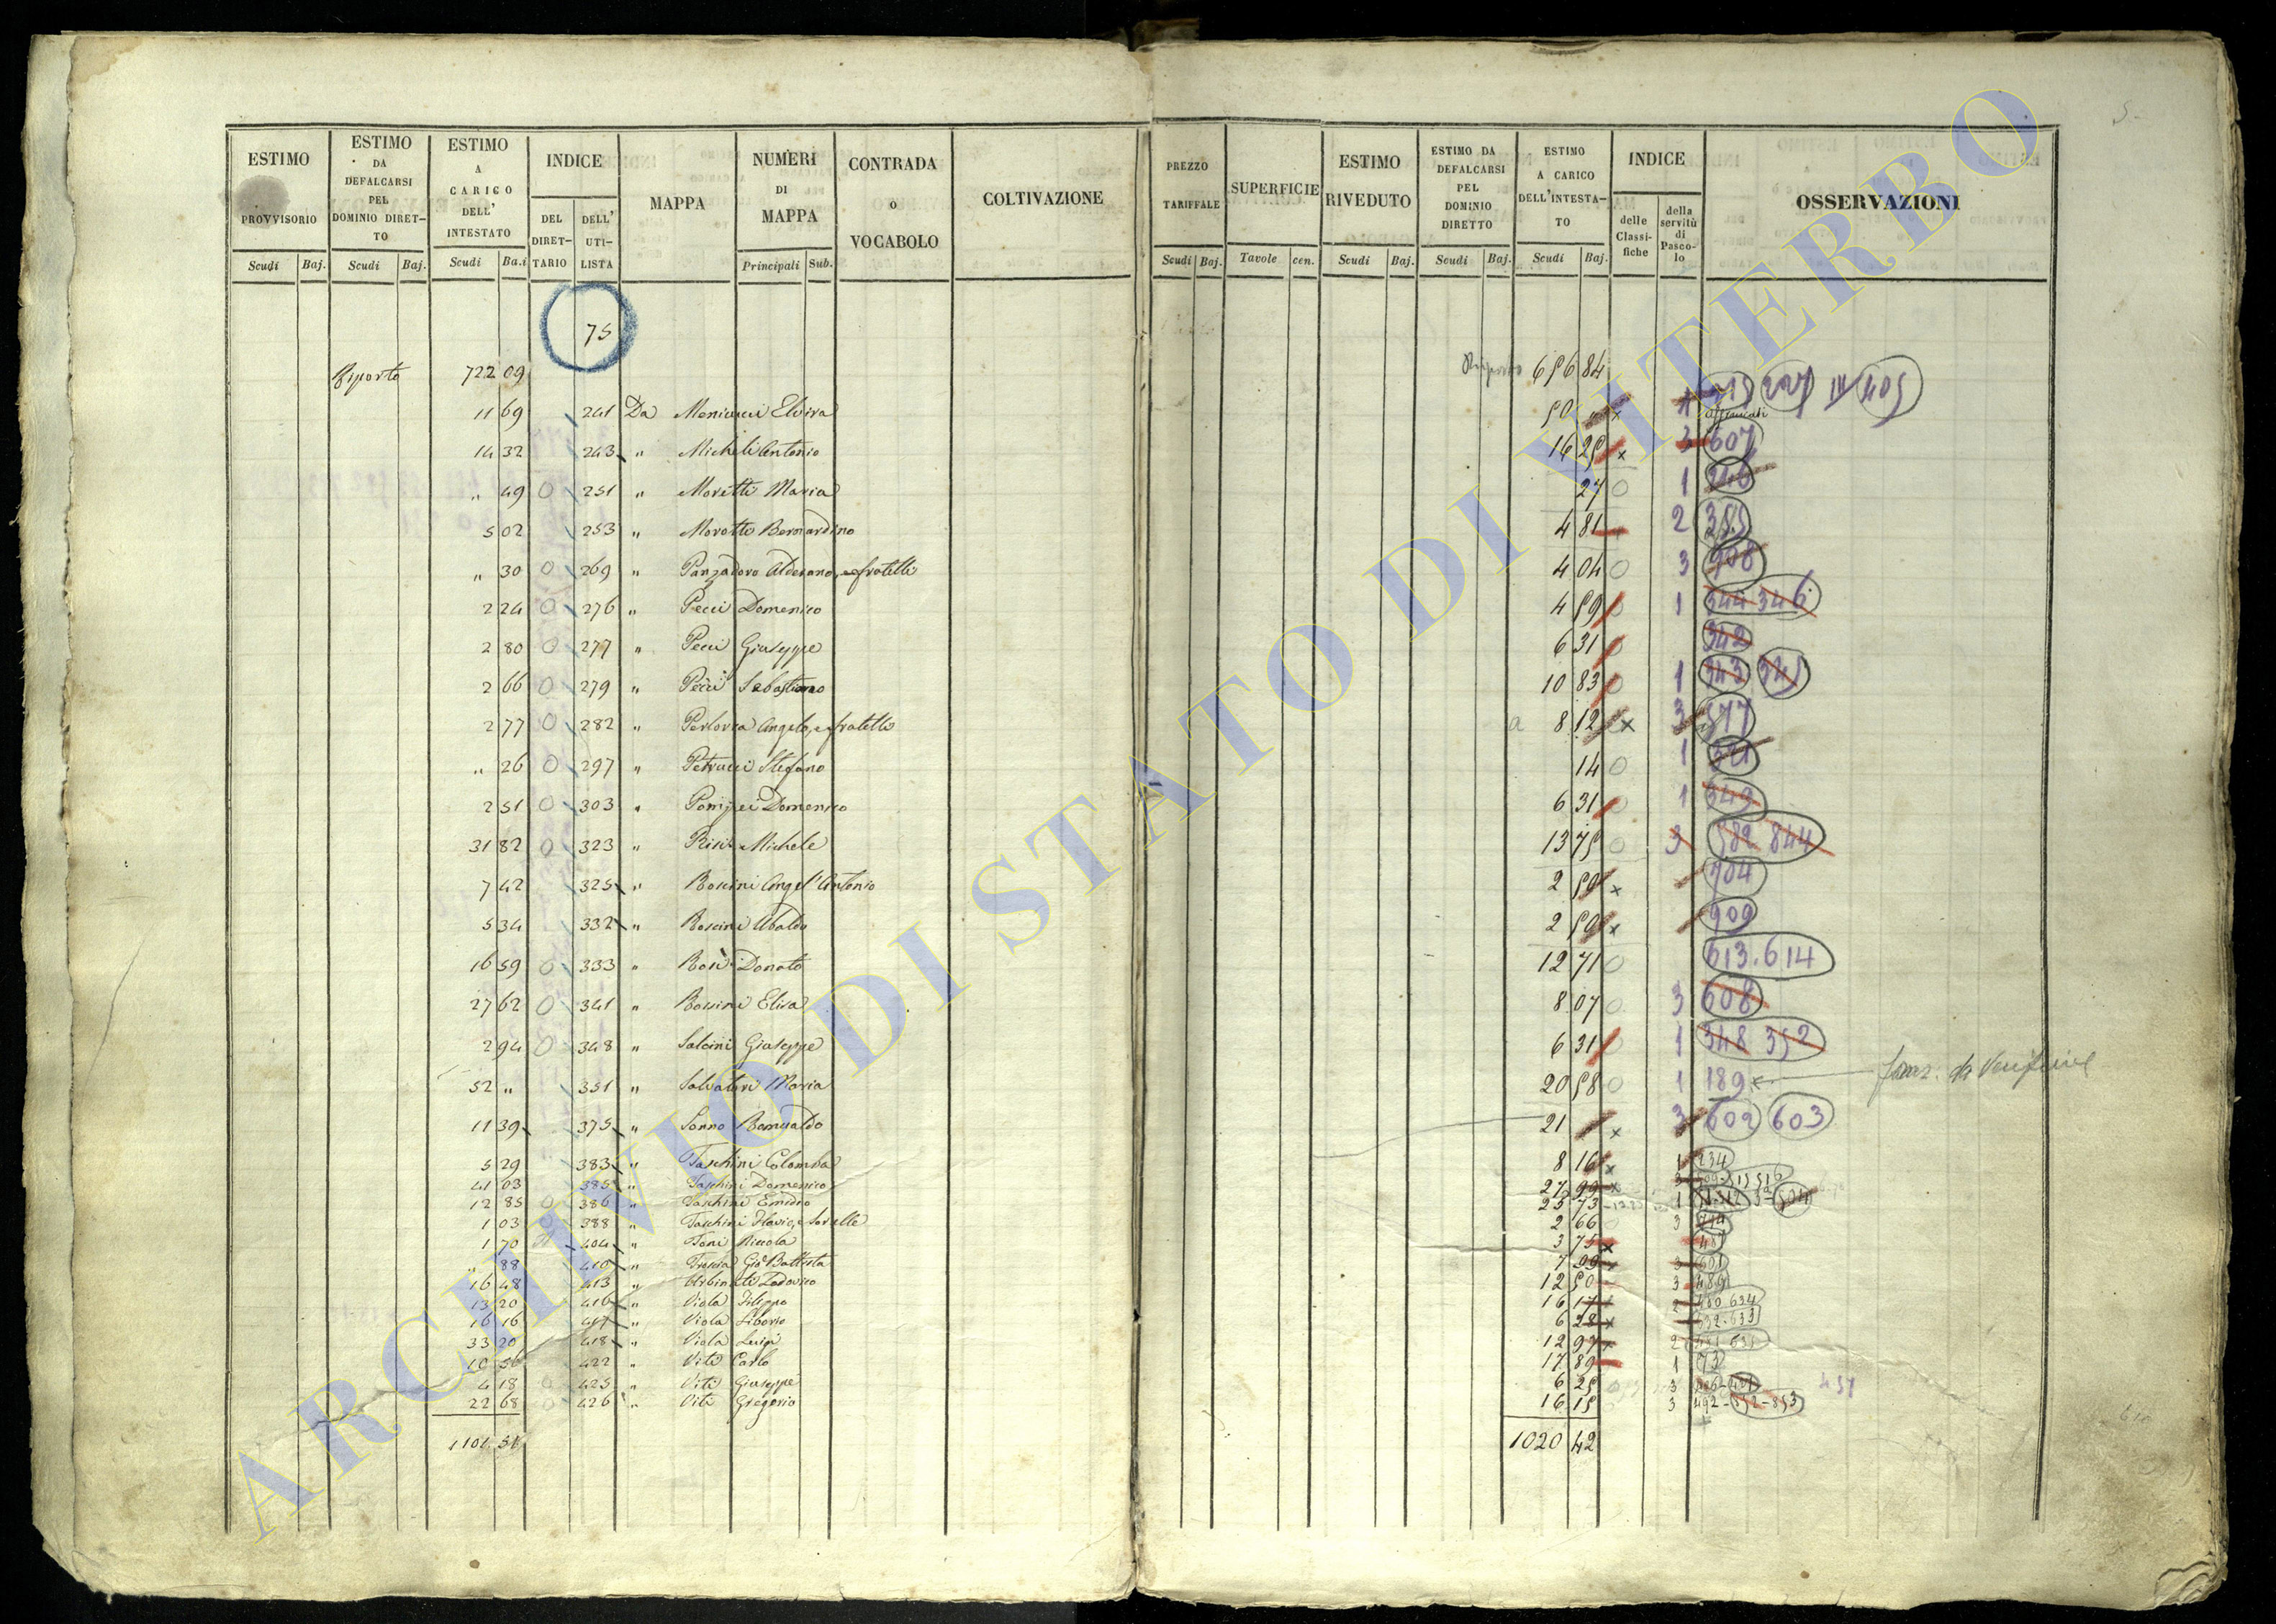 ESTIMO PROVVISORIO
Scudi Baj.
ESTIMO DA DEFALCARSI PEL DOMINIO DIRET-TO
Scudi Baj.
ESTIMO A CARICO DELL' INTESTATO
Scudi Ba.i
INDICE
DEL DIRET-TARIO
DELL' UTI-LISTA
MAPPA
NUMERI DI MAPPA
Principali Sub.
CONTRADA o VOCABOLO
COLTIVAZIONE
75
Riporto 722 09
11 69 241 Da Menicucci Elvira
14 32 243 " Micheli Antonio
" 49 0 251 " Moretti Maria
5 02 253 " Morotti Bernardino
" 30 0 269 " Panzadoro Alderano, e fratelli
2 24 0 276 " Pecci Domenico
2 80 0 277 " Pecci Giuseppe
2 66 0 279 " Pecci Sebastiano
2 77 0 282 " Angelo, e fratelli
" 26 0 297 " Petrucci Stefano
2 51 0 303 " Pompei Domenico
31 82 0 323 " Michele
7 42 325 " Roscini Angel'Antonio
5 34 332 " Roscini Ubaldo
16 59 0 333 " Donato
27 62 0 341 " Elisa
2 94 0 348 " Salcini Giuseppe
52 " 351 " Salvatori Maria
11 39 375 " Sonno Romualdo
5 29 383 " Taschini Colomba
41 03 385 " Taschini Domenico
12 85 0 386 " Taschini Emidio
1 03 0 388 " Taschini Flavio, e Sorelle
1 70 404 " Toni Nicola
" 88 410 " Gio Battista
16 48 413 " Urbinati Lodovico
13 20 416 " Viola Filippo
16 16 417 " Viola Liborio
33 20 418 " Viola Luigi
10 56 422 " Viti Carlo
4 18 0 425 " Viti Giuseppe
22 68 0 426 " Viti Gregorio
1101 51
PREZZO TARIFFALE
Scudi Baj.
SUPERFICIE
Tavole cen.
ESTIMO RIVEDUTO
Scudi Baj.
ESTIMO DA DEFALCARSI PEL DOMINIO DIRETTO
Scudi Baj.
ESTIMO A CARICO DELL'INTESTA-TO
Scudi Baj.
INDICE
delle Classi-fiche
della servitù di Pasco-lo
OSSERVAZIONI
Riporto 656 84
50 " x 405
affrancati
16 25 x 3 607
27 0 1 246
4 81 2 385
4 04 0 3 908
4 59 0 1 344 346
6 31 0 342
10 83 0 1 343 345
a 8 12 x 3 577
14 0 1
6 31 0 1 349
13 75 0 3 582 844
2 50 x 904
2 50 x 909
12 71 0 613.614
8 07 0 3 608
6 31 0 1 348 352
20 58 0 1 189
21 x 3 602 603
8 16 x 1 234
27 99 x
25 73 1
2 66 3
3 75 x
7 99 3 601
12 50 3
16 17 2 634
6 28 x 632.633
12 97 x 2
17 89 1 73
6 25 3
16 15 3 492-852-853
1020 42
ARCHIVIO DI STATO DI VITERBO